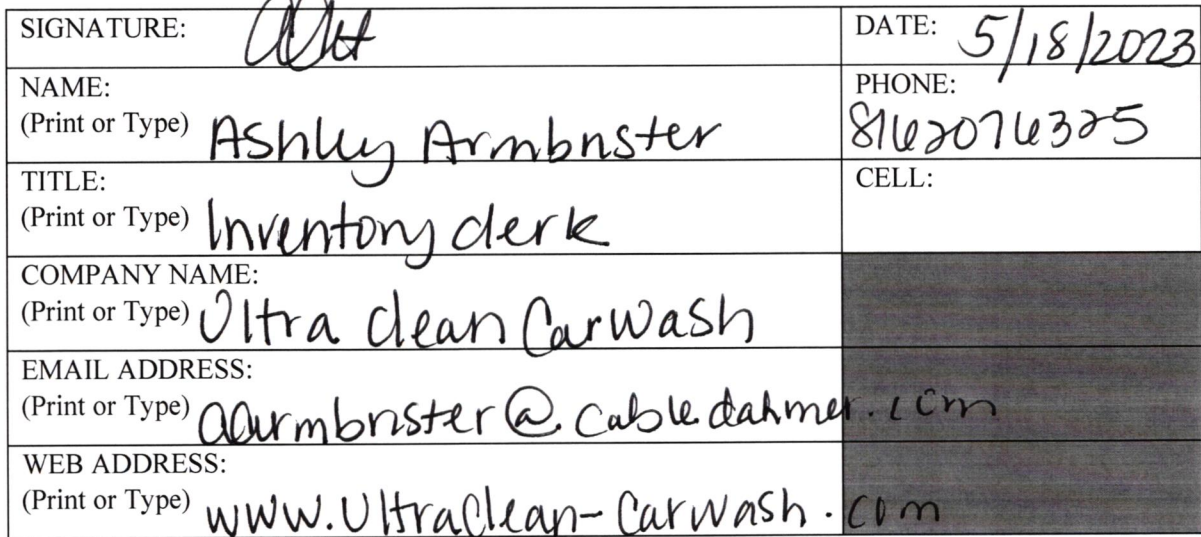 SIGNATURE: DATE: 5/18/2023
NAME: PHONE:
(Print or Type) Ashley Armbrister 8162076325
TITLE: CELL:
(Print or Type) Inventory clerk
COMPANY NAME:
(Print or Type) Ultra clean CarWash
EMAIL ADDRESS:
(Print or Type) aarmbrister@cabledahmer.com
WEB ADDRESS:
(Print or Type) www.Ultraclean-Carwash.com